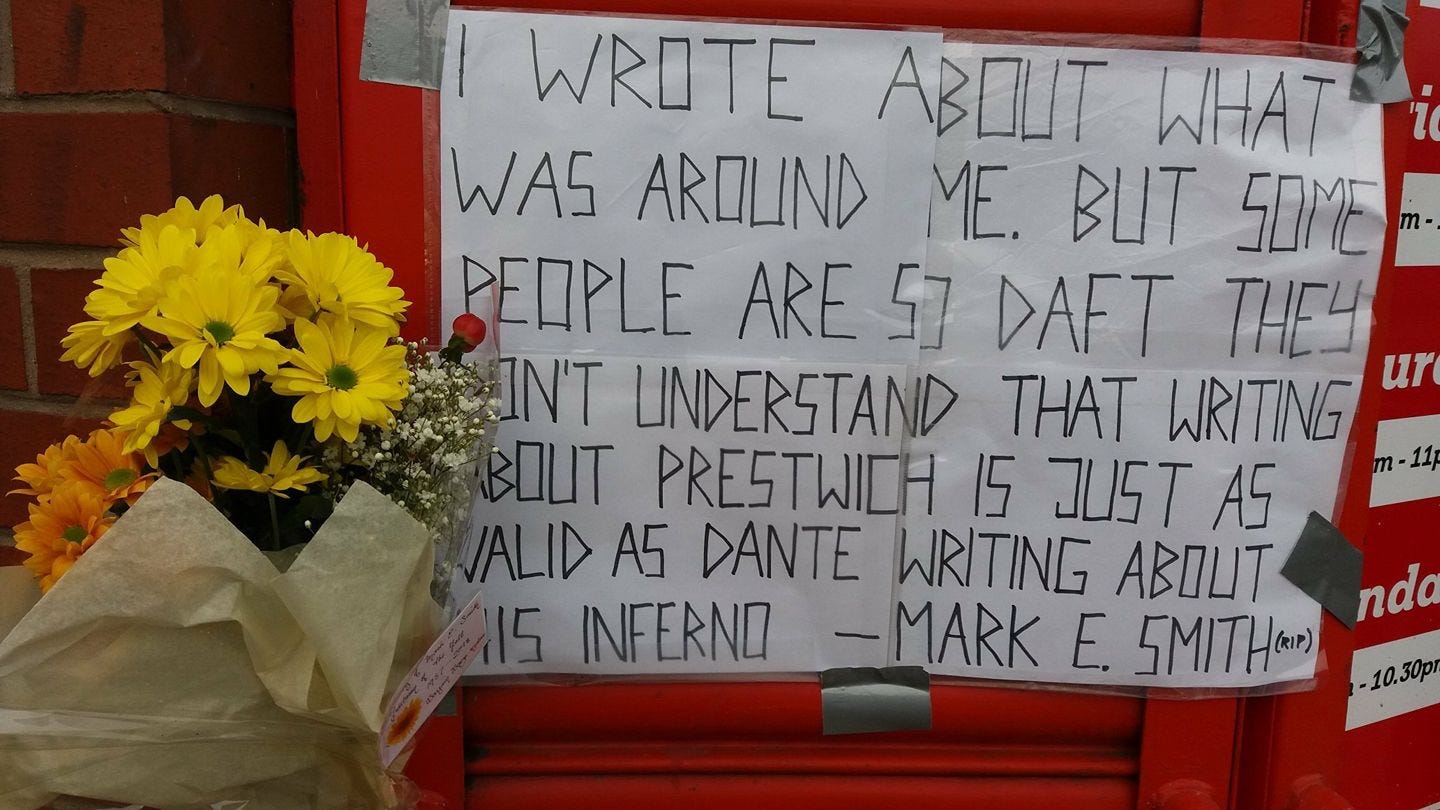 I WROTE ABOUT WHAT
WAS AROUND ME. BUT SOME
PEOPLE ARE SO DAFT THEY
ON'T UNDERSTAND THAT WRITING
ABOUT PRESTWICH IS JUST AS
VALID AS DANTE WRITING ABOUT
IS INFERNO — MARK E. SMITH (RIP)
m - 11p
- 10.30pm